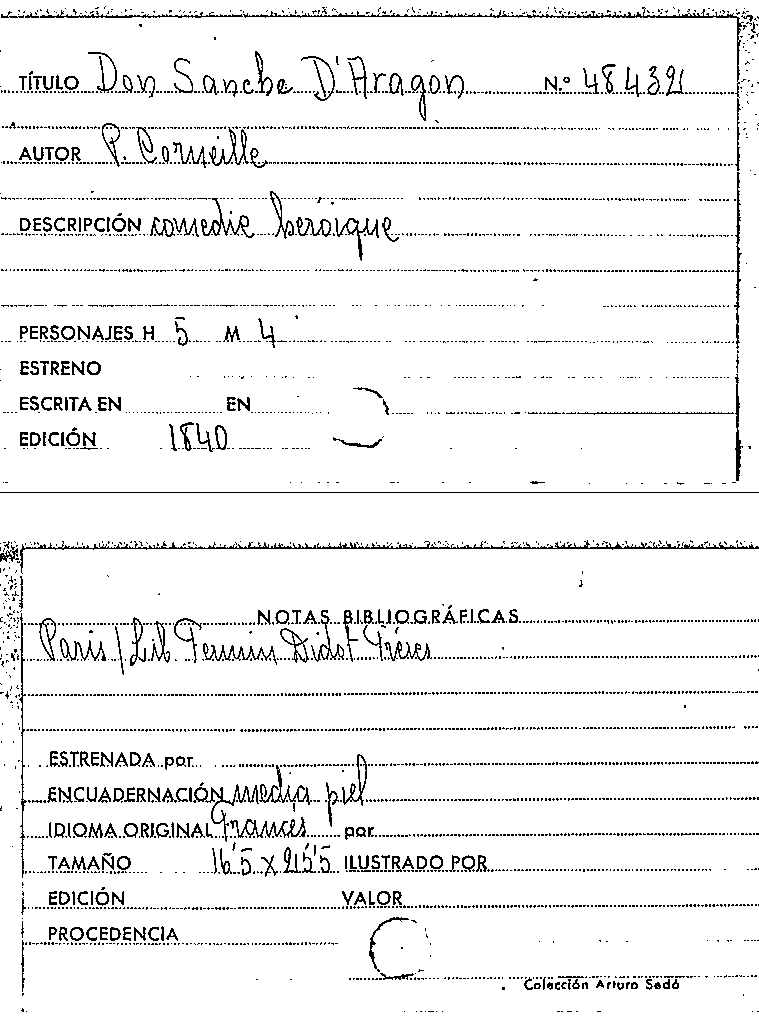 TÍTULO Don Sanche D'Aragon N.º 484391
AUTOR P. Corneille
DESCRIPCIÓN comedie heróique
PERSONAJES H 5 M 4
ESTRENO
ESCRITA EN EN
EDICIÓN 1840
NOTAS BIBLIOGRÁFICAS
Paris / Lib Fermin Didot Fréres
ESTRENADA por
ENCUADERNACIÓN media piel
IDIOMA ORIGINAL Frances por
TAMAÑO 16'5 x 25'5 ILUSTRADO POR
EDICIÓN VALOR
PROCEDENCIA
Colección Arturo Sedó